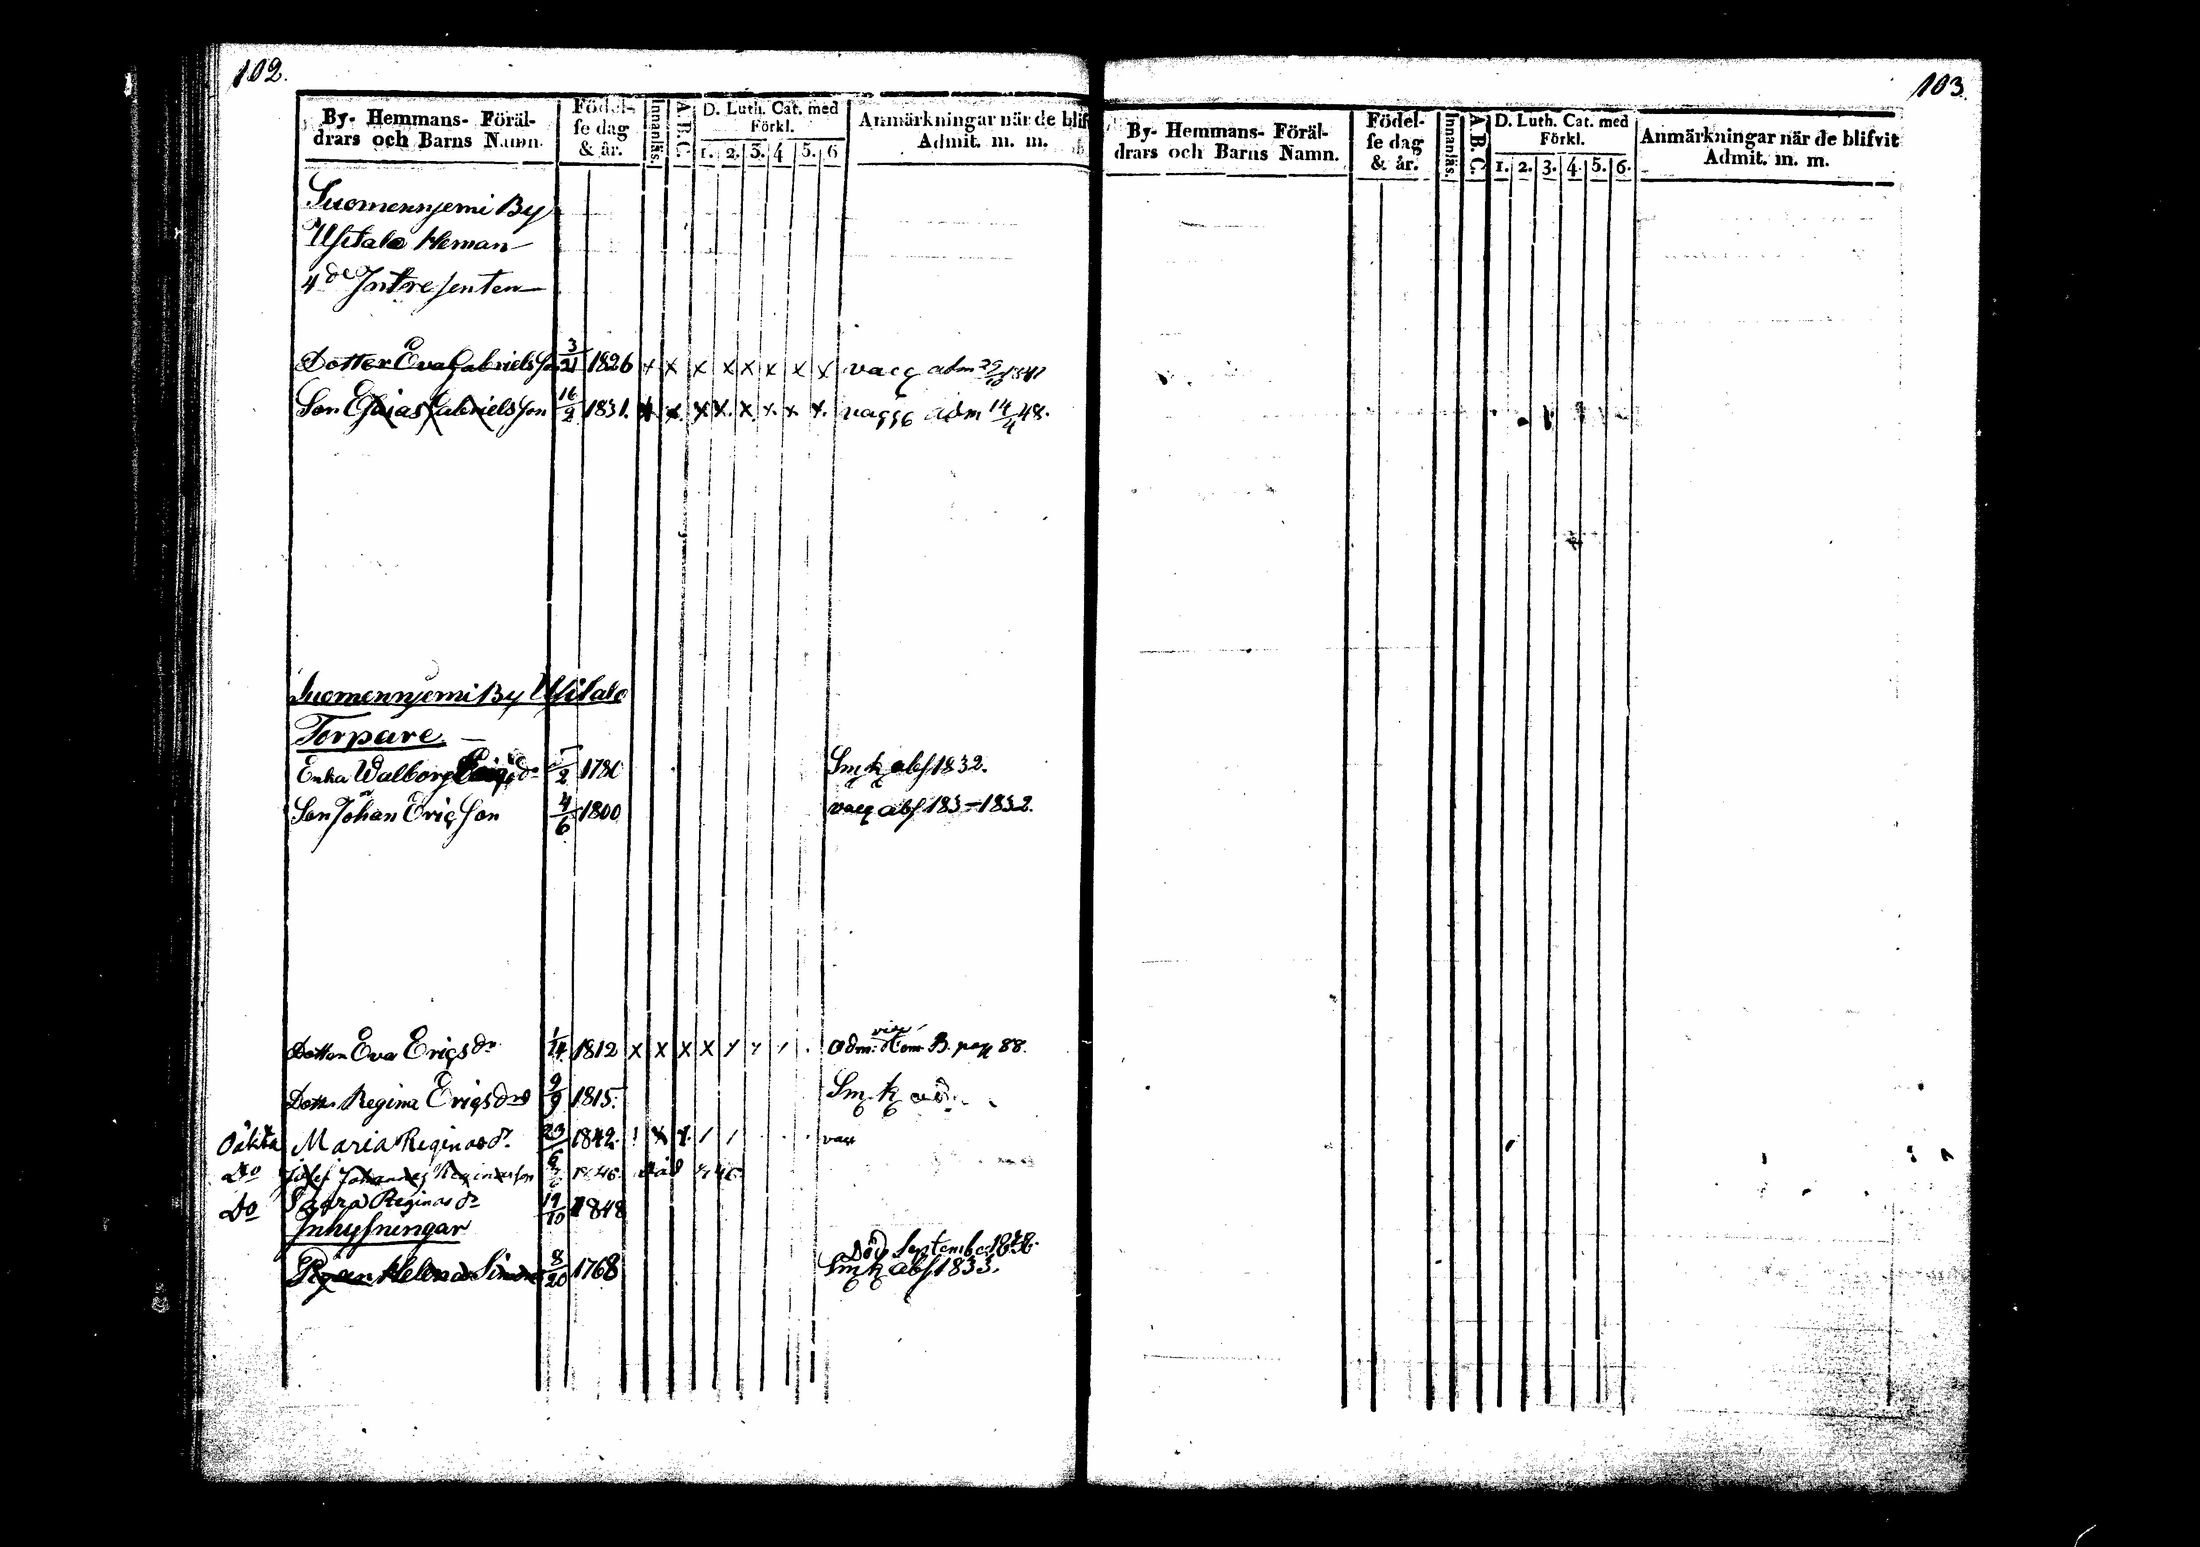 102.
By- Hemmans- Föräl-
drars och Barns Namn.
Födel-
se dag
& år.
Innanläs.
A. B. C.
D. Luth. Cat. med
Förkl.
1. 2. 3. 4 5. 6
Anmärkningar när de blif
Admit. m. m.
Suomenniemi By
Usitalo Heman
4de Intressenten
Dotter Eva Gabriels 3/21 1826 x x x x x x x x vacc adm
Son Elias Gabrielsson 16/2 1831. x x x x x x x x. adm 14/4 48.
Suomenniemi By Usitalo
Torpare
Enka Walborg dr /2 178 Smk abs 1832.
Son Johan Ericsson 4/6 1800 vacc abs 183 - 1832.
Dotter Eva Ericsdr 1/14 1812 x x x x Adm. vid Com B. pag 88.
Dott. Regina Ericsdr 9/9 1815. Smk
Oäkta Maria Reginasdr. 23/6 1842. vacc
Do Josef Johannes Reginasson 1846. död
Do Sara Reginasdr 19/10 1848
Inhysningar
Död September
Pigan Helena Simsdr 8/20 1768 Smk abs 1833.
103.
By- Hemmans- Föräl-
drars och Barns Namn.
Födel-
se dag
& år.
Innanläs.
A. B. C.
D. Luth. Cat. med
Förkl.
1. 2. 3. 4. 5. 6.
Anmärkningar när de blifvit
Admit. m. m.